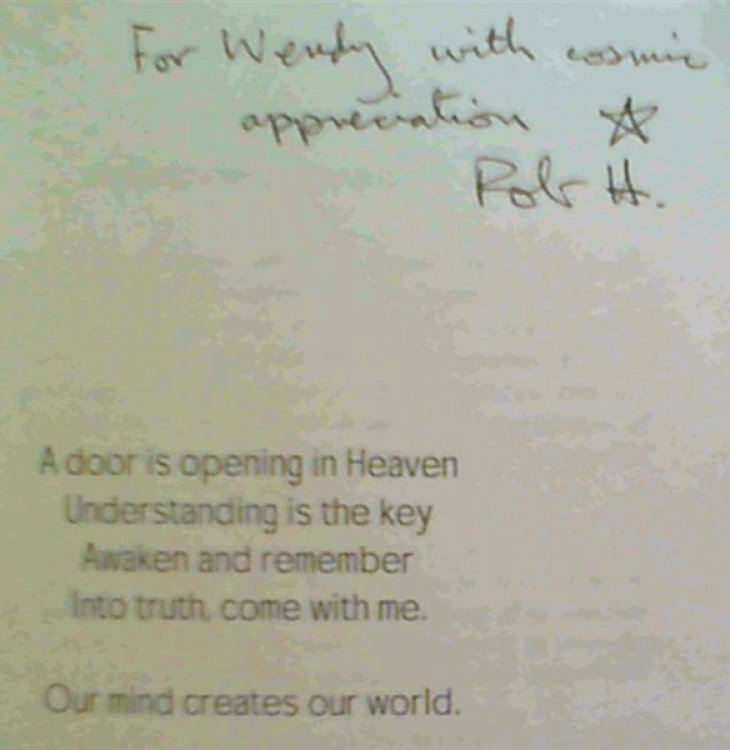 For Wendy with cosmic
appreciation
Rob H.
A door is opening in Heaven
Understanding is the key
Awaken and remember
Into truth, come with me.
Our mind creates our world.